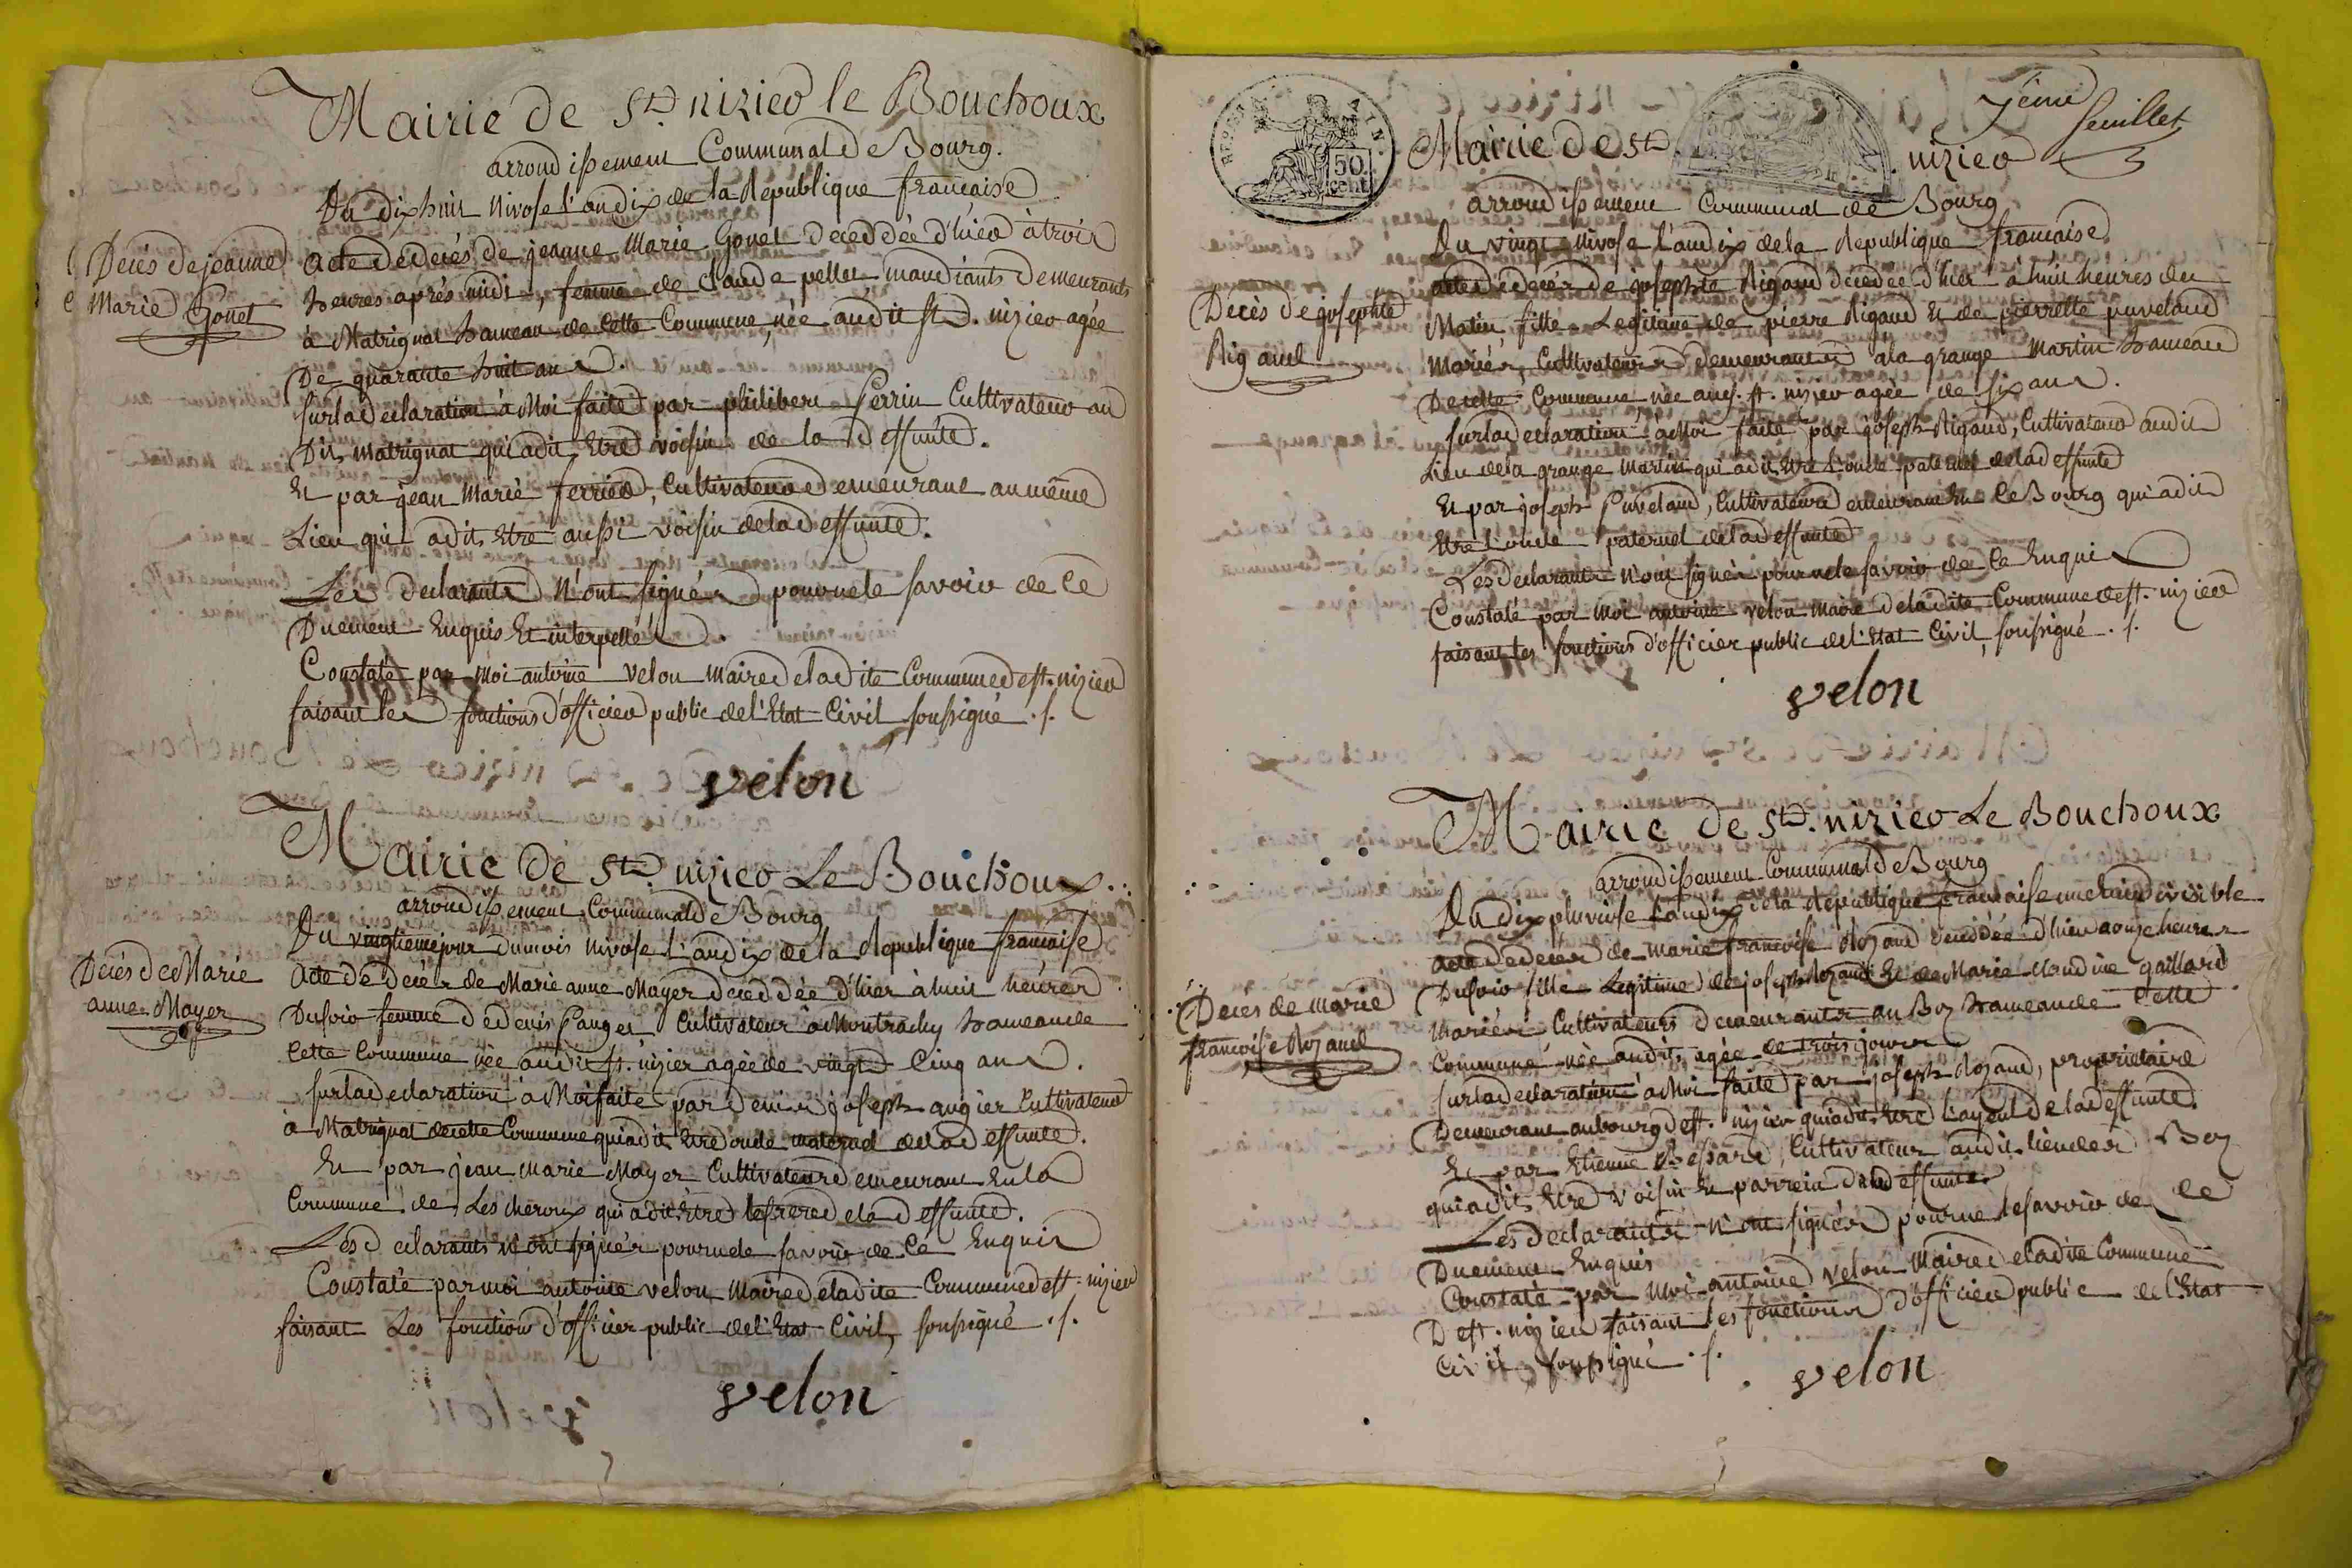 Mairie de St. nizier le Bouchoux
arrondissement Communal de Bourg.
Du dix huit Nivose l'an dix de la République française
Décès de jeanne
Marie Gonet
acte de décés de jeanne Marie Gonet décédée d'hier à trois
heures aprés midi, femme de Claude pellet mandiants demeurants
à Matrignat hameau de Cette Commune, née audit st. nizier agée
De quarante huit ans.
sur la declaration à Moi faite par philibert Perrin Cultivateur au
Dit Matrignat qui a dit Etre voisin de la deffunte.
Et par jean Marie ferrier, Cultivateur demeurant au même
Lieu qui a dit Etre aussi voisin de la deffunte.
Les declarants N'ont signés pour ne le savoir de Ce
Duement Enquis Et interpellés.
Constaté par Moi antoine velon Maire de la dite Commune de st. nizier
faisant les fonctions d'officier public de l'Etat Civil soussigné ./.
velon
Mairie de St. nizier Le Bouchoux
arrondissement Communal de Bourg
Du vingtieme jour du mois Nivose l'an dix de la Republique française
Décés de Marie
anne Mayer
Acte de decés de Marie anne Mayer décédée d'hier à huit heures
Du soir femme de denis Panget Cultivateur à Montrachy hameau de
Cette Commune née audit st. nizier agée de vingt Cinq ans.
sur la declaration à Moi faite par denis joseph augier Cultivateur
à Matrignat de cette Commune qui a dit Etre oncle maternel de la deffunte.
Et par jean Marie Mayer Cultivateur demeurant En la
Commune de Les cheroux qui a dit Etre le frere de la deffunte.
Les declarants N'ont signés pour ne le savoir de Ce Enquis
Constaté par moi antoine velon Maire de la dite Commune de st. nizier
faisant Les fonctions d'officier public de l'Etat Civil, soussigné ./.
velon
7eme
feuillet
REP. FRA. AIN.
50 cent.
Mairie de St. nizier
arrondissement Communal de Bourg
Du vingt Nivose l'an dix de la Republique française
Décès de josephte
Rigaud
acte de décés de josephte Rigaud décédée d'hier à huit heures du
Matin, fille Legitime de pierre Rigaud Et de pierrette puvelaud
Mariés, Cultivateurs demeurants à la grange Martin hameau
De cette Commune née au s. st. nizier agée de six ans.
sur la declaration à Moi faite par joseph Rigaud, Cultivateur audit
Lieu de la grange Martin qui a dit Etre L'oncle paternel de la deffunte
Et par joseph Puvelaud, Cultivateur demeurant En Ce Bourg qui a dit
Etre L'oncle paternel de la deffunte
Les declarants N'ont signés pour ne le savoir de Ce Enquis
Constaté par Moi antoine velon Maire de la dite Commune de st. nizier
faisant les fonctions d'officier public de l'Etat Civil, soussigné ./.
velon
Mairie de St. nizier Le Bouchoux
arrondissement Communal de Bourg
Du dix pluviose l'an dix de la République française une et indivisible
Décés de Marie
françoise Rozand
acte de décés de Marie françoise Rozand décédée d'hier à onze heures
Du soir fille Legitime de joseph Rozand Et de Marie Claudine gaillard
Mariés Cultivateurs demeurants au Boz hameau de Cette
Commune née audit, agée de trois jours
sur la declaration à Moi faite par joseph Rozand, proprietaire
Demeurant au bourg de st. nizier qui a dit Etre L'ayeul de la deffunte.
Et par Etienne Bessard, Cultivateur audit lieu des Boz
qui a dit Etre voisin Et parrein de la deffunte.
Les declarants N'ont signés pour ne le savoir de Ce
Duement Enquis
Constaté par Moi antoine velon Maire de la dite Commune
De st. nizier faisant les fonctions d'officier public de l'Etat
Civil soussigné ./.
velon